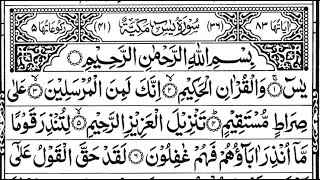 اٰیَاتُهَا ٨٣ (٣٦) سُوْرَةُ يٰسٓ مَكِّيَّةٌ (٤١) رُكُوْعَاتُهَا ٥
بِسْمِ اللّٰهِ الرَّحْمٰنِ الرَّحِيْمِ
يٰسٓ ۚ ١ وَالْقُرْاٰنِ الْحَكِيْمِ ۙ ٢ اِنَّكَ لَمِنَ الْمُرْسَلِيْنَ ۙ ٣ عَلٰى
صِرَاطٍ مُّسْتَقِيْمٍ ؕ ٤ تَنْزِيْلَ الْعَزِيْزِ الرَّحِيْمِ ۙ ٥ لِتُنْذِرَ قَوْمًا
مَّاۤ اُنْذِرَ اٰبَآؤُهُمْ فَهُمْ غٰفِلُوْنَ ٦ لَقَدْ حَقَّ الْقَوْلُ عَلٰۤى